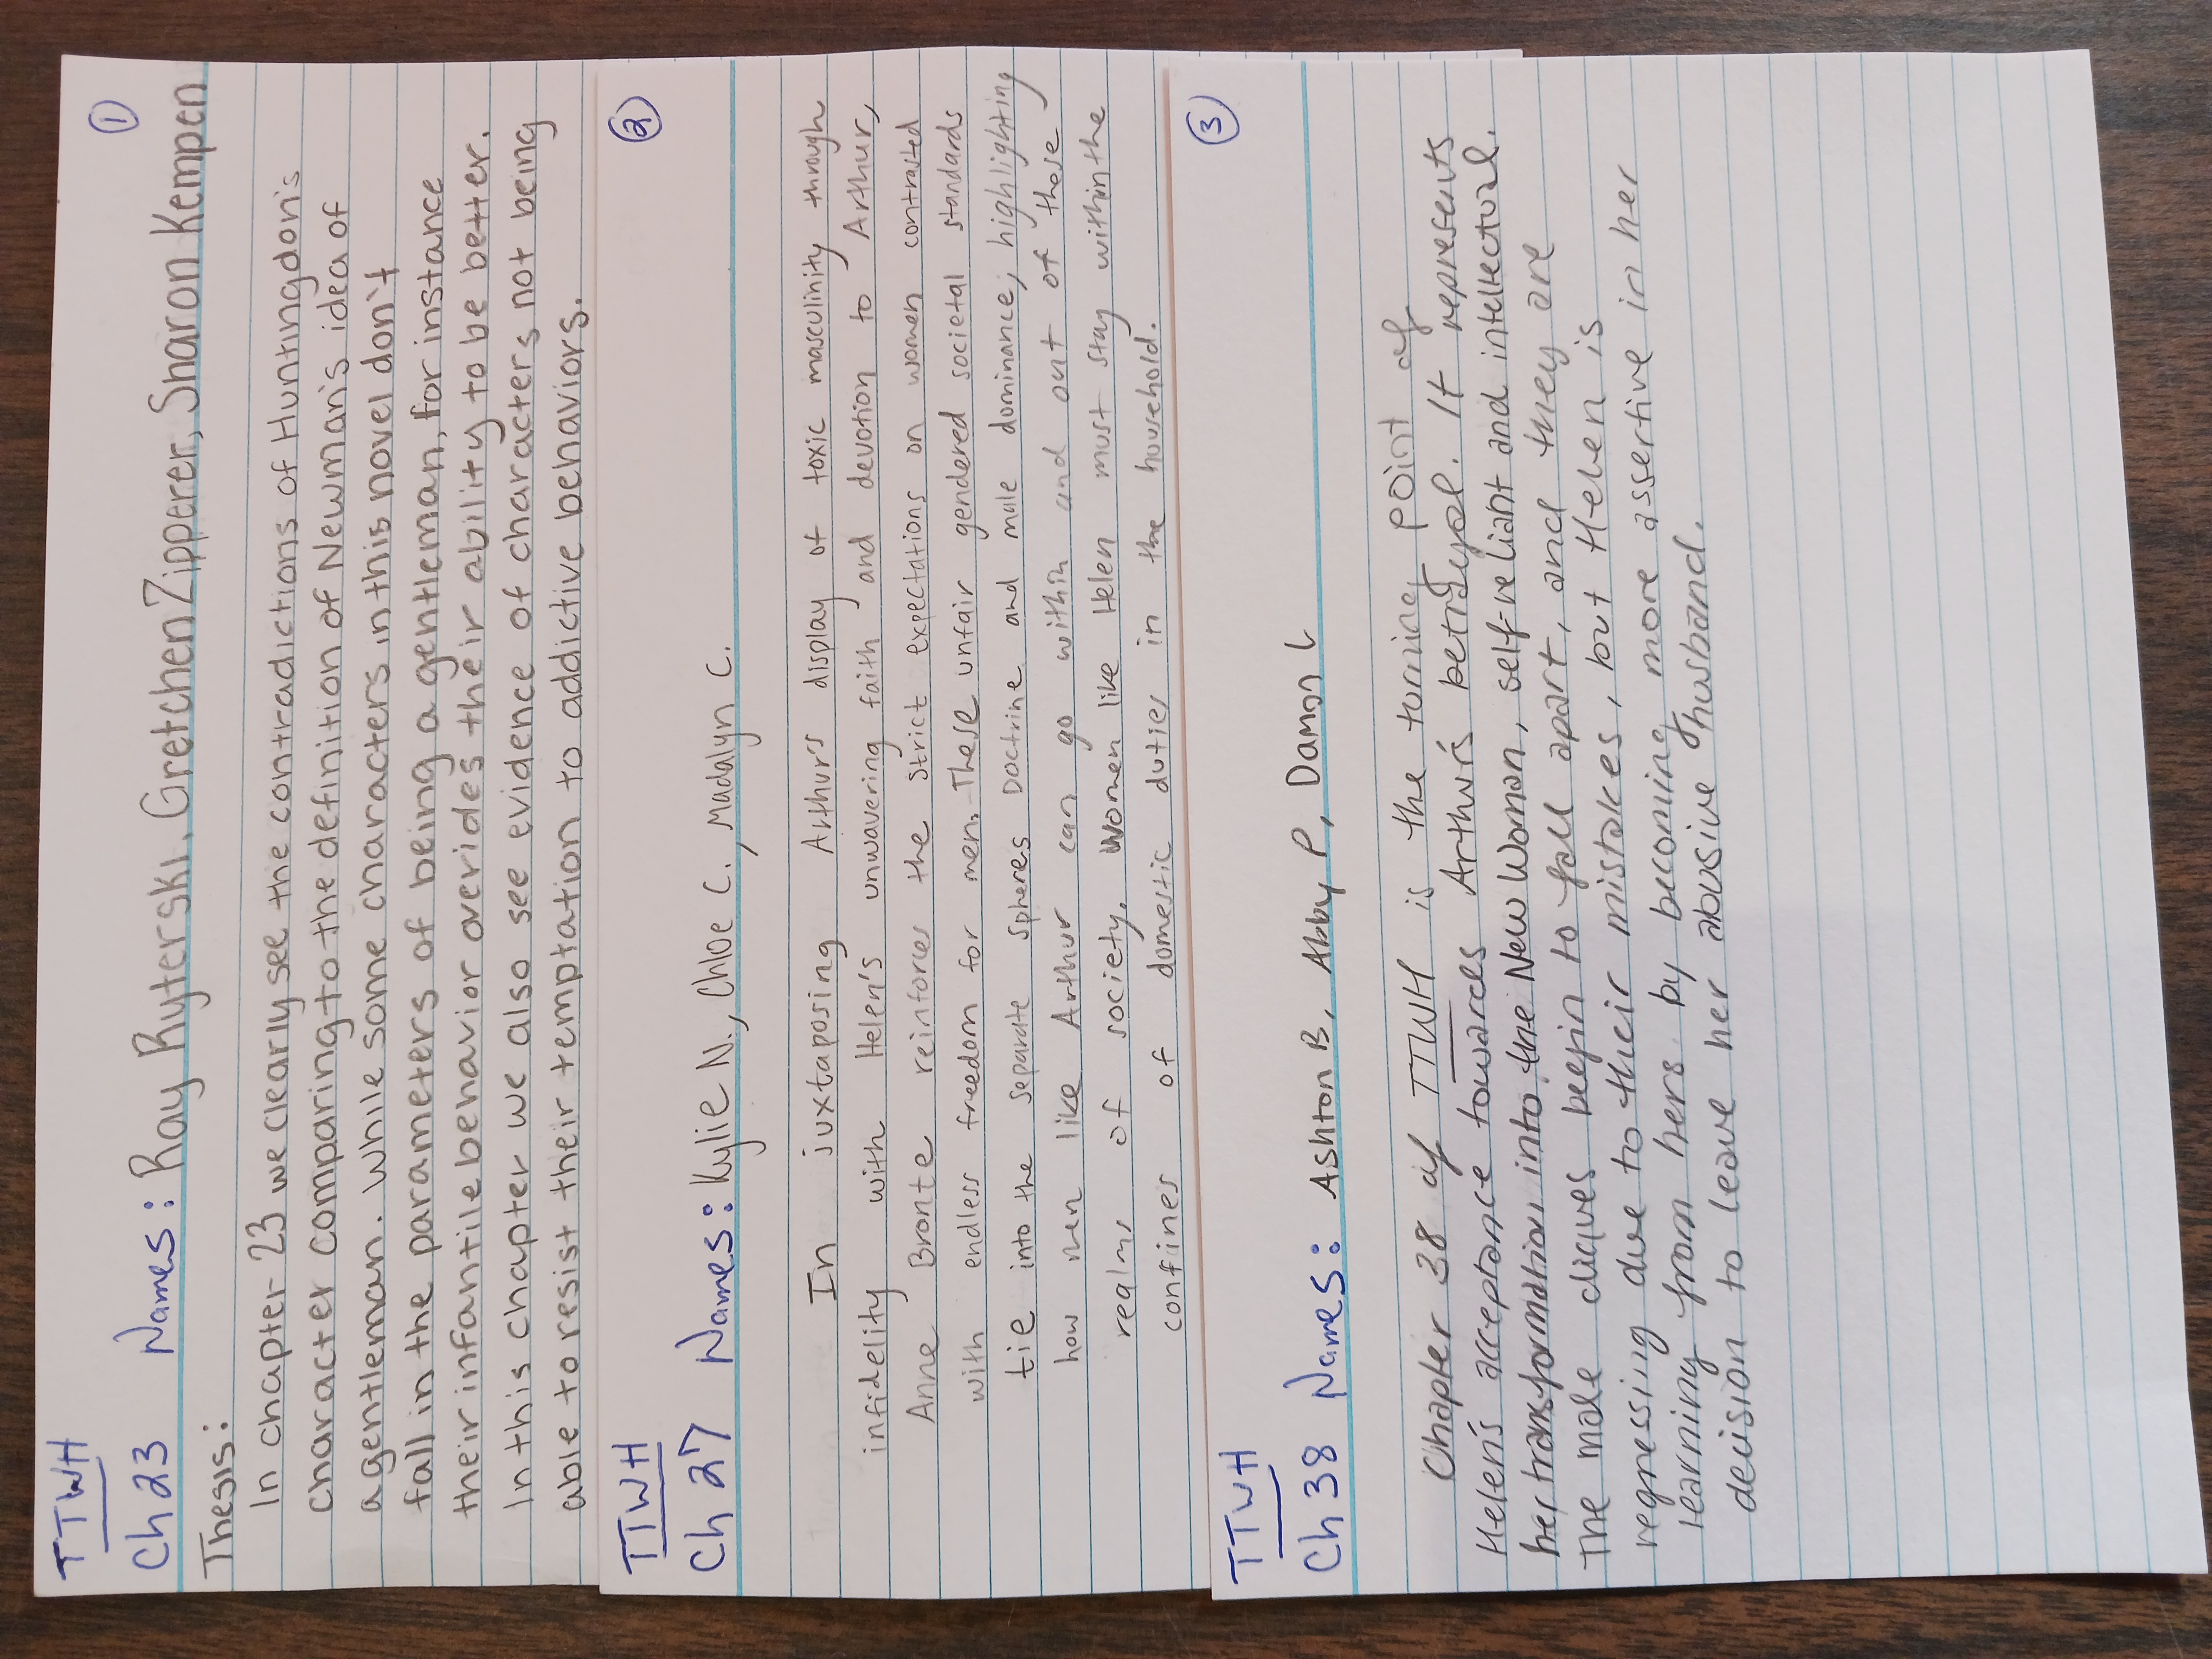 TTWH ①
Ch 23 Names: Ray Ryterski, Gretchen Zipperer, Sharon Kempen
Thesis:
In chapter 23 we clearly see the contradictions of Huntingdon's
character comparing to the definition of Newman's idea of
a gentleman. While some characters in this novel don't
fall in the parameters of being a gentleman, for instance
their infantile behavior overides their ability to be better.
In this chapter we also see evidence of characters not being
able to resist their temptation to addictive behaviors.
TTWH ②
Ch 27 Names: Kylie N., Chloe C., Madalyn C.
In juxtaposing Arthurs display of toxic masculinity through
infidelity with Helen's unwavering faith and devotion to Arthur,
Anne Bronte reinforces the strict expectations on women contrasted
with endless freedom for men. These unfair gendered societal standards
tie into the separate spheres Doctrine and male dominance, highlighting
how men like Arthur can go within and out of these
realms of society. Women like Helen must stay within the
confines of domestic duties in the household.
TTWH ③
Ch 38 Names: Ashton B, Abby P, Damon L
Chapter 38 of TTWH is the turning point of
Helen's acceptance towards Arthur's betrayal. It represents
her transformation into the New Woman, self-reliant and intellectual.
The male cliques begin to fall apart, and they are
regressing due to their mistakes, but Helen is
learning from hers by becoming more assertive in her
decision to leave her abusive husband.